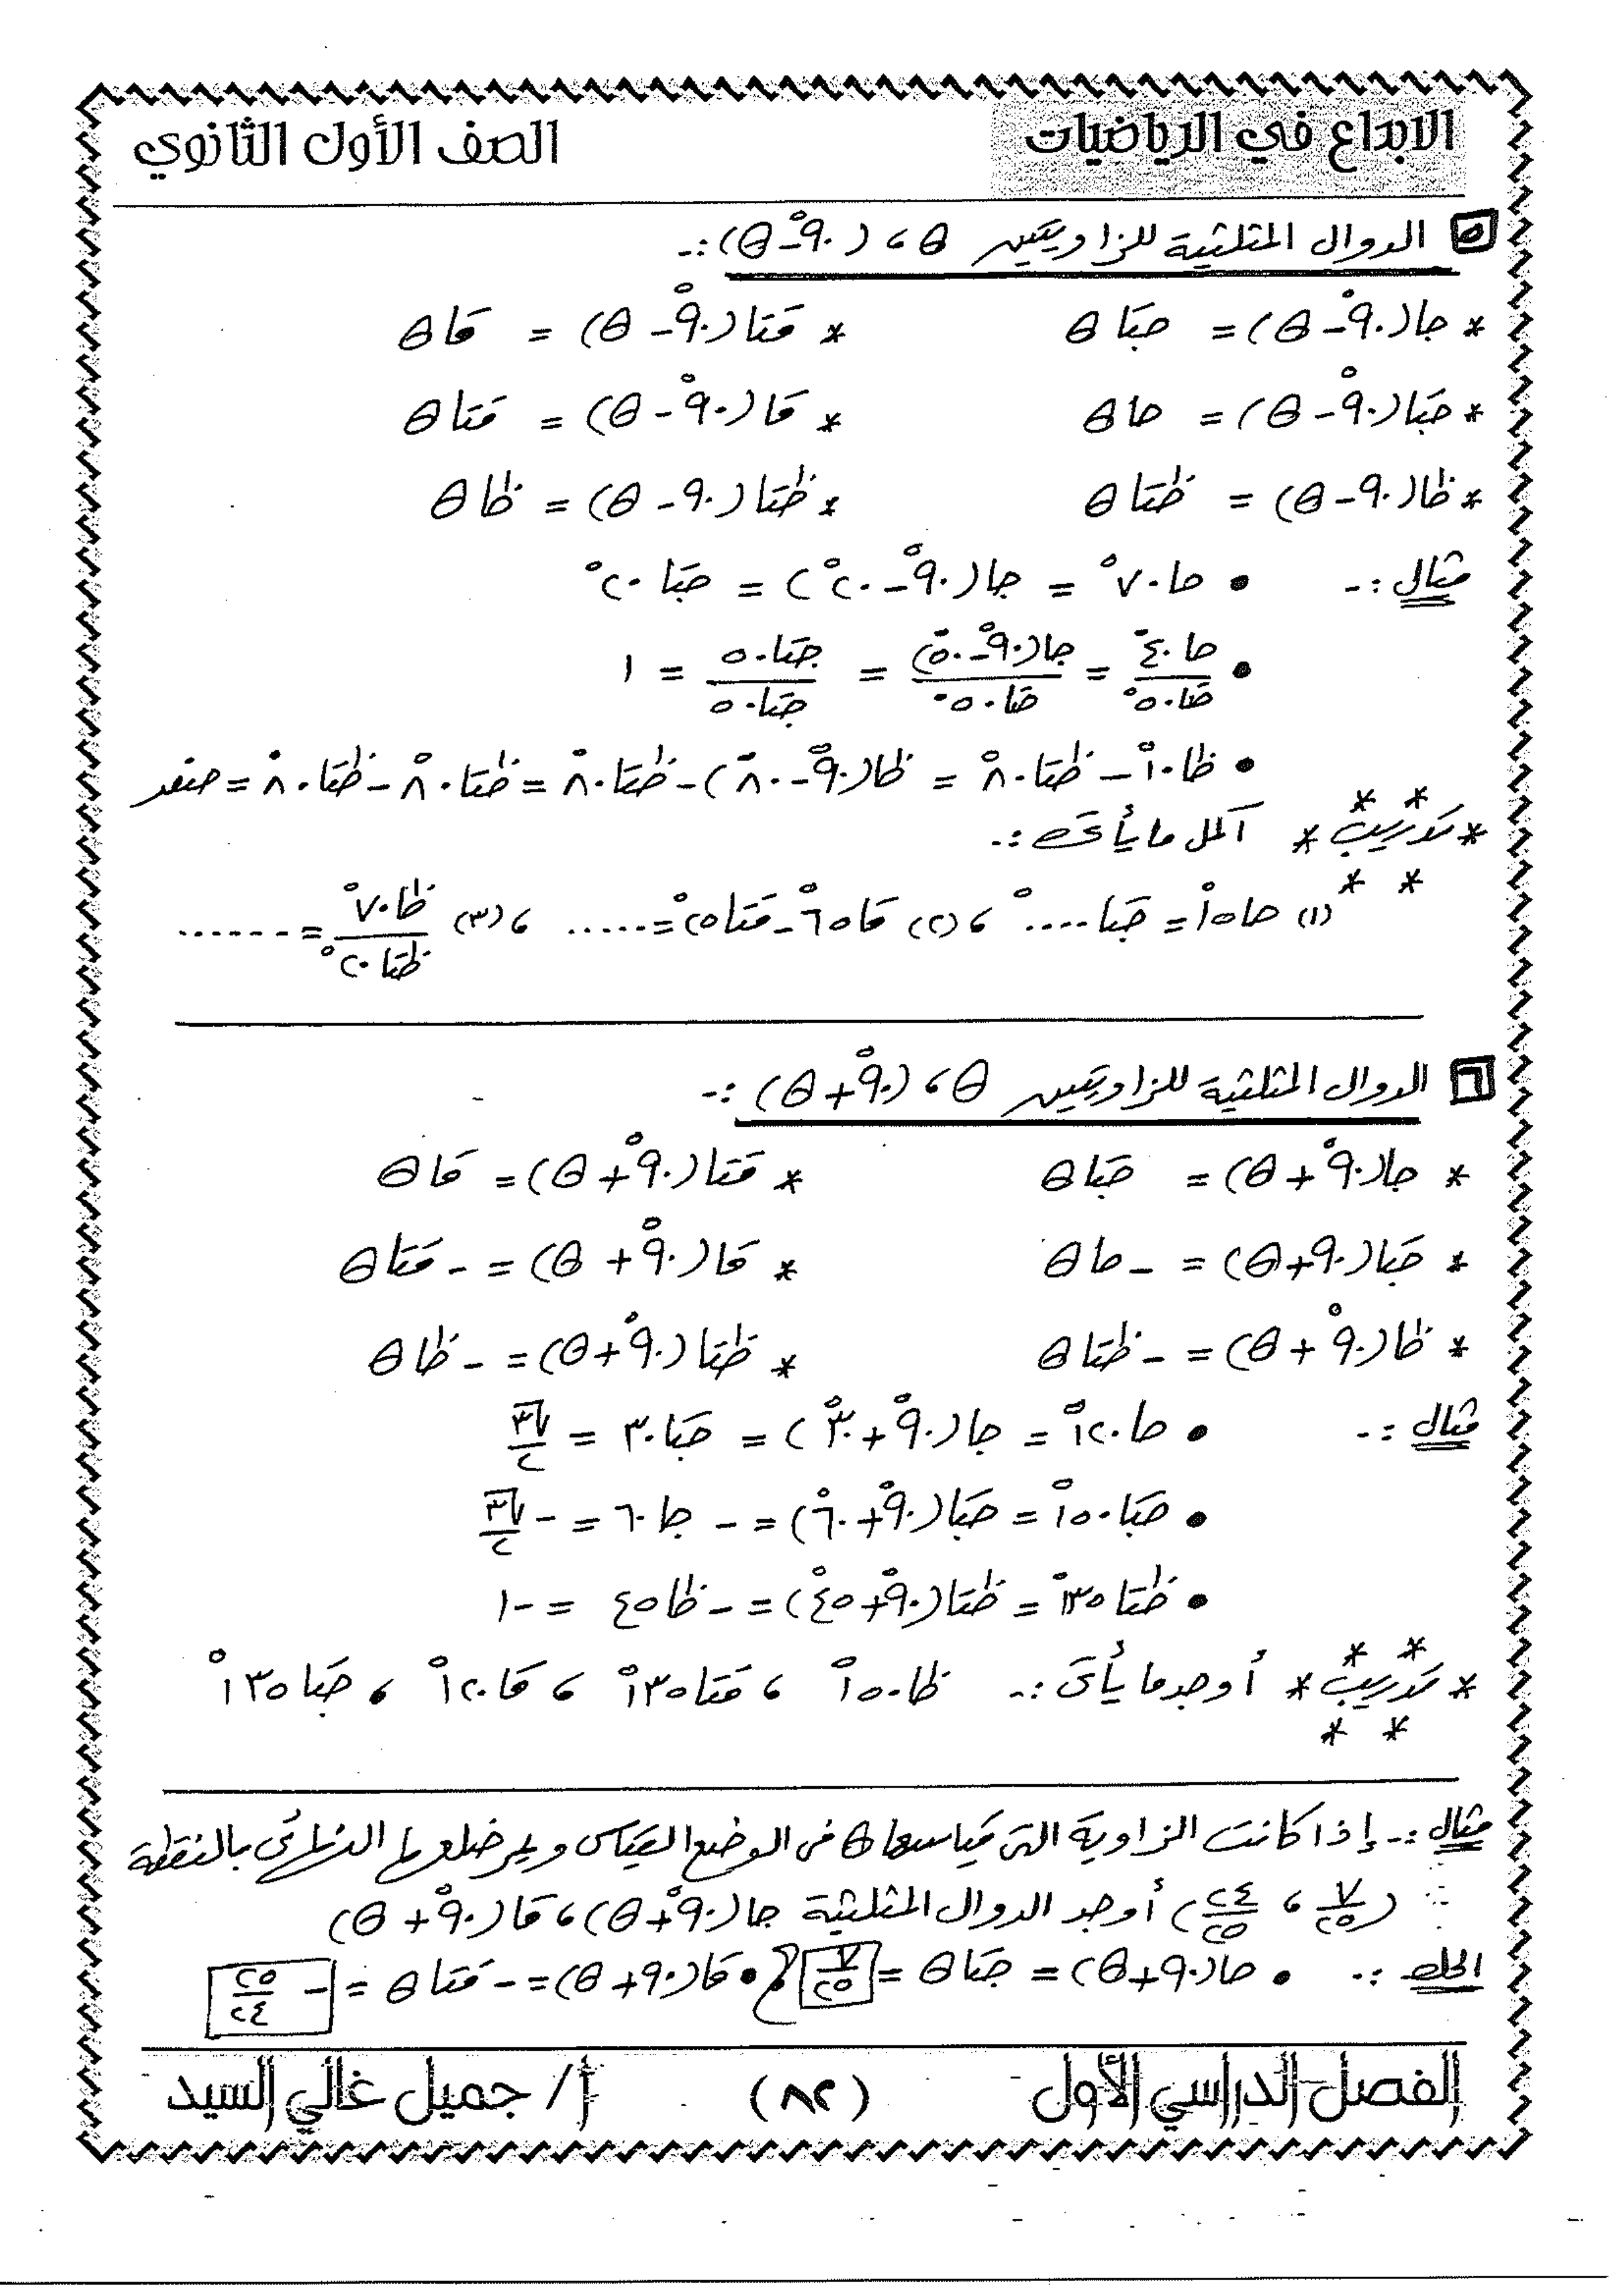 الابداع في الرياضيات الصف الأول الثانوي
٥ الدوال المثلثية للزاويتين θ ، (٩٠° − θ) :-
* جا(٩٠° − θ) = جتا θ * قتا(٩٠° − θ) = قا θ
* جتا(٩٠° − θ) = جا θ * قا(٩٠° − θ) = قتا θ
* ظا(٩٠ − θ) = ظتا θ * ظتا(٩٠ − θ) = ظا θ
مثال :- • جا ٧٠° = جا(٩٠° − ٢٠°) = جتا ٢٠°
• جا ٤٠° / جتا ٥٠° = جا(٩٠° − ٥٠°) / جتا ٥٠° = جتا ٥٠ / جتا ٥٠ = ١
• ظا ١٠° − ظتا ٨٠° = ظا(٩٠° − ٨٠°) − ظتا ٨٠° = ظتا ٨٠° − ظتا ٨٠° = صفر
* تدريب * أكمل ما يأتى :-
(١) جا ١٥° = جتا .....° ، (٢) قا ٦٥° − قتا ٢٥° = ..... ، (٣) ظا ٧٠° / ظتا ٢٠° = ......
٦ الدوال المثلثية للزاويتين θ ، (٩٠° + θ) :-
* جا(٩٠° + θ) = جتا θ * قتا(٩٠° + θ) = قا θ
* جتا(٩٠ + θ) = − جا θ * قا(٩٠° + θ) = − قتا θ
* ظا(٩٠° + θ) = − ظتا θ * ظتا(٩٠° + θ) = − ظا θ
مثال :- • جا ١٢٠° = جا(٩٠° + ٣٠°) = جتا ٣٠ = √٣ / ٢
• جتا ١٥٠° = جتا(٩٠° + ٦٠°) = − جا ٦٠ = − √٣ / ٢
• ظتا ١٣٥° = ظتا(٩٠° + ٤٥°) = − ظا ٤٥ = −١
* تدريب * أوجد ما يأتى :- ظا ١٥٠° ، قتا ١٣٥° ، قا ١٢٠° ، جتا ١٣٥°
مثال :- إذا كانت الزاوية التى قياسها θ فى الوضع القياسى ويمر ضلعها النهائى بالنقطة
(٧/٢٥ ، ٢٤/٢٥) أوجد الدوال المثلثية جا(٩٠° + θ) ، قا(٩٠° + θ)
الحل :- • جا(٩٠ + θ) = جتا θ = ٧/٢٥ • قا(٩٠ + θ) = − قتا θ = − ٢٥/٢٤
الفصل الدراسي الأول (٨٢) أ/ جميل غالي السيد